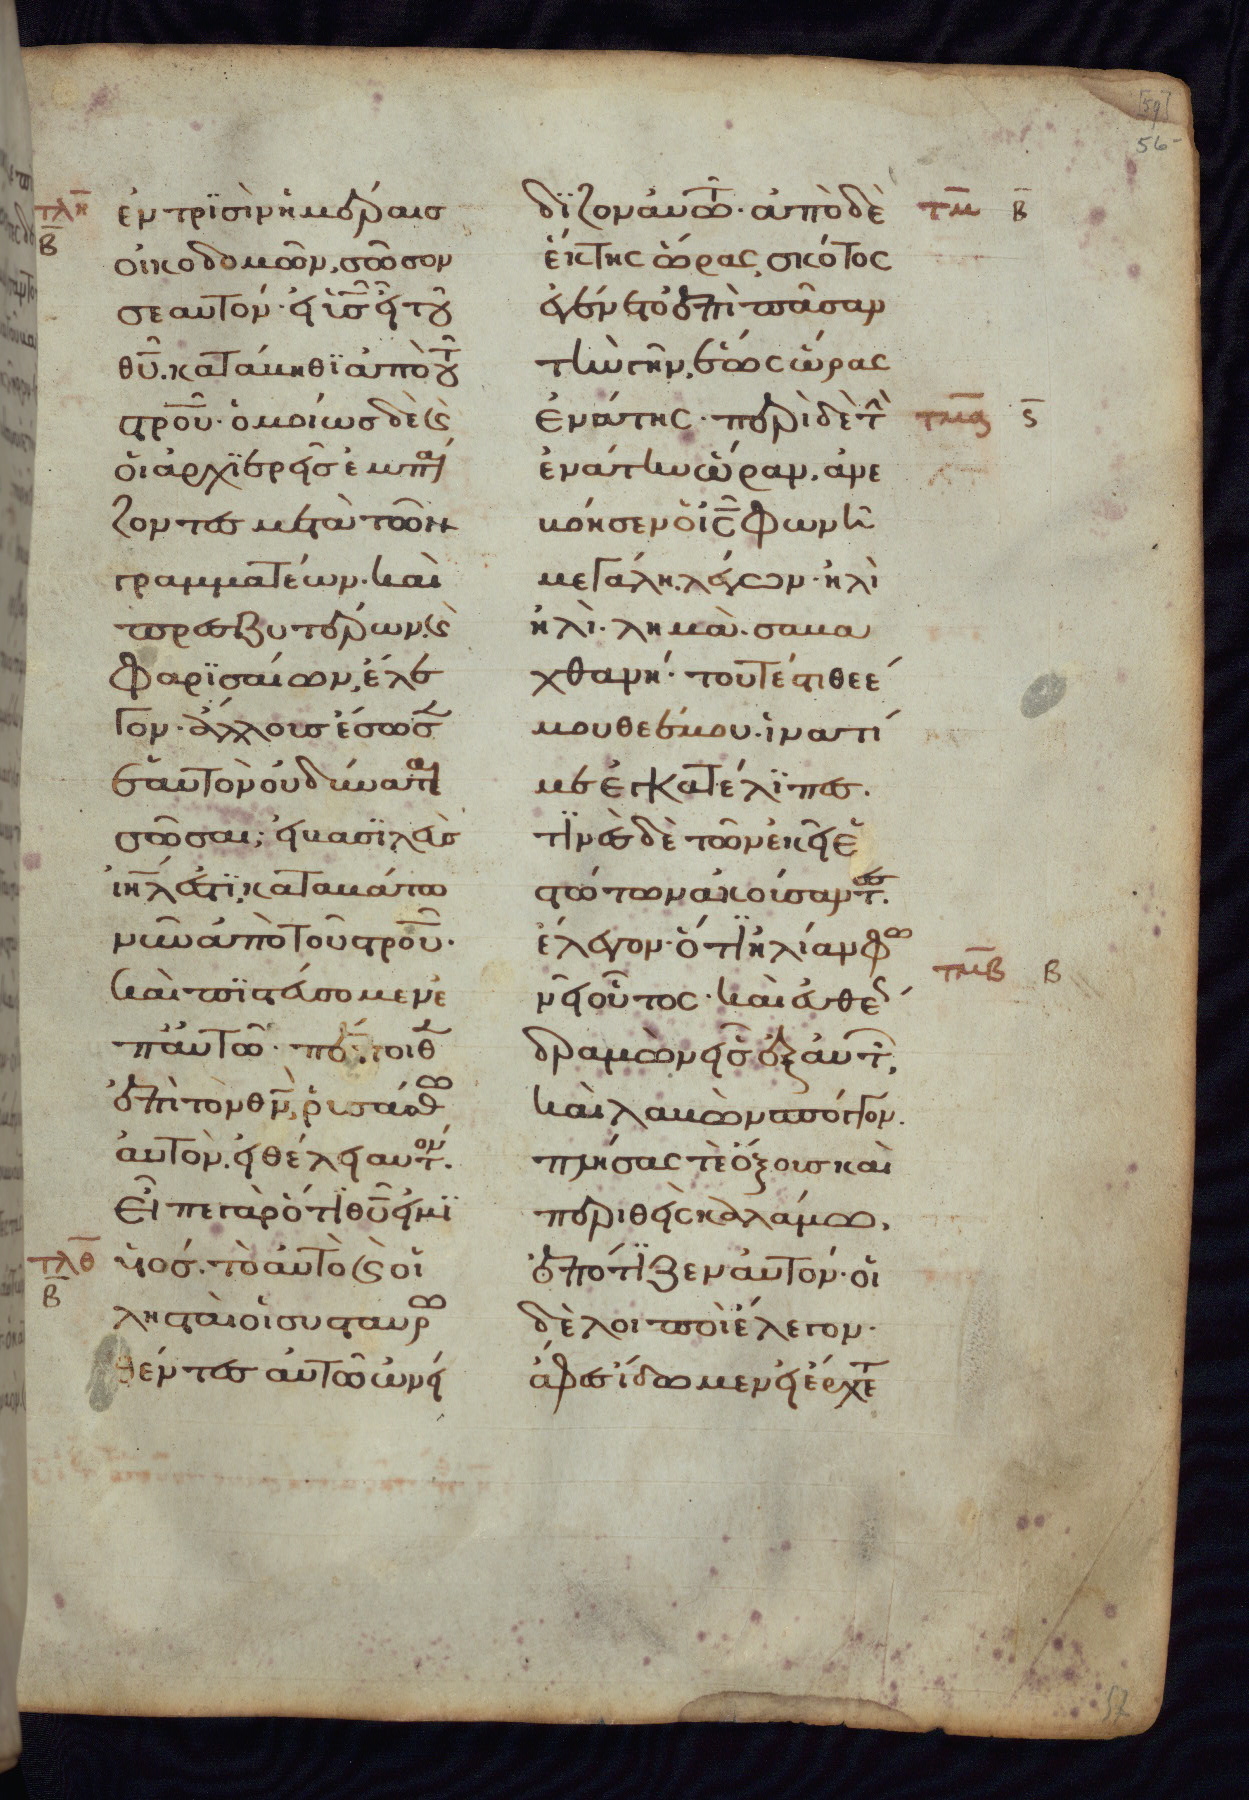 [59]
56
τλη
β
ἐν τρϊσὶν ἡμέραις
οἰκοδομῶν, σῶσον
σεαυτόν· εἰ υ̅ς̅ εἶ τοῦ
θ̅υ̅. κατάβηθϊ ἀπὸ τοῦ
στρο̅υ̅· ὁμοίως δὲ καὶ
ὁι ἀρχϊερεῖς ἐμπαί
ζοντες μετὰ τῶν
γραμματέων· καὶ
πρεσβυτέρων. καὶ
φαρϊσαίων, ἔλε
γον· ἄλλους ἔσωσε
ἑαυτὸν οὐ δύναται
σῶσαι; εἰ βασϊλεὺς
ι̅η̅λ̅ ἐστϊ, καταβάτω
νῦν ἀπὸ τοῦ στρο̅υ̅·
καὶ πϊστεύσομεν ἐ
π' αὐτῶ· πέποιθε
ἐπὶ τὸν θ̅ν̅, ῥυσάσθω
αὐτὸν. εἰ θέλει αὐτόν.
εἶπε γὰρ ὅτϊ θ̅υ̅ εἰμϊ
τλθ
β
υἱός. τὸ αὐτὸ καὶ οἱ
λησταὶ οἱ συσταυρω
θέντες αὐτῶ ὠνεί
δϊζον αὐτῶ· ἀπὸ δὲ
τμ β
ἕκτης ὥρας, σκότος
ἐγένετο ἐπὶ πᾶσαν
τὴν γῆν, ἕως ὥρας
ἐνάτης· περὶ δὲ τὴν
τμα ς
ἐνάτην ὥραν, ἀνε
βόησεν ὁ ι̅ς̅ φωνῆ
μεγάλη. λέγων· ἠλὶ
ἠλὶ· λημὰ· σαβα
χθανή· τουτέστι θεέ
μου θεέ μου· ἱνατί
με ἐγκατέλϊπες.
τϊνὲς δὲ τῶν ἐκεῖ ἑ
στώτων ἀκούσαντες.
ἔλεγον· ὅτϊ ἠλίαν φω
νεῖ οὗτος· καὶ εὐθέως
τμβ β
δραμὼν εἷς ἐξ αὐτῶν,
καὶ λαβὼν σπόγγον.
πλήσας τὲ ὄξους καὶ
περιθεὶς καλάμω,
ἐπότϊζεν αὐτόν· οἱ
δὲ λοιποὶ ἔλεγον·
ἄφες ἴδωμεν εἰ ἔρχεται
57